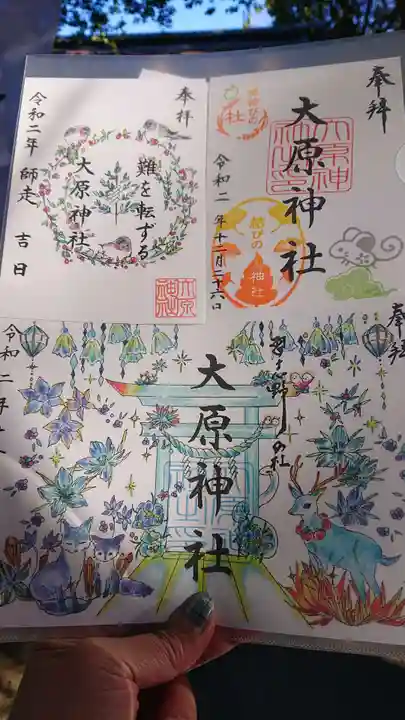 奉拝
難を転ずる
大原神社
令和二年 師走 吉日
奉拝
大原神社
令和二年十二月二十六日
結びの
神社
社
奉拝
大原神社
令和二年十二